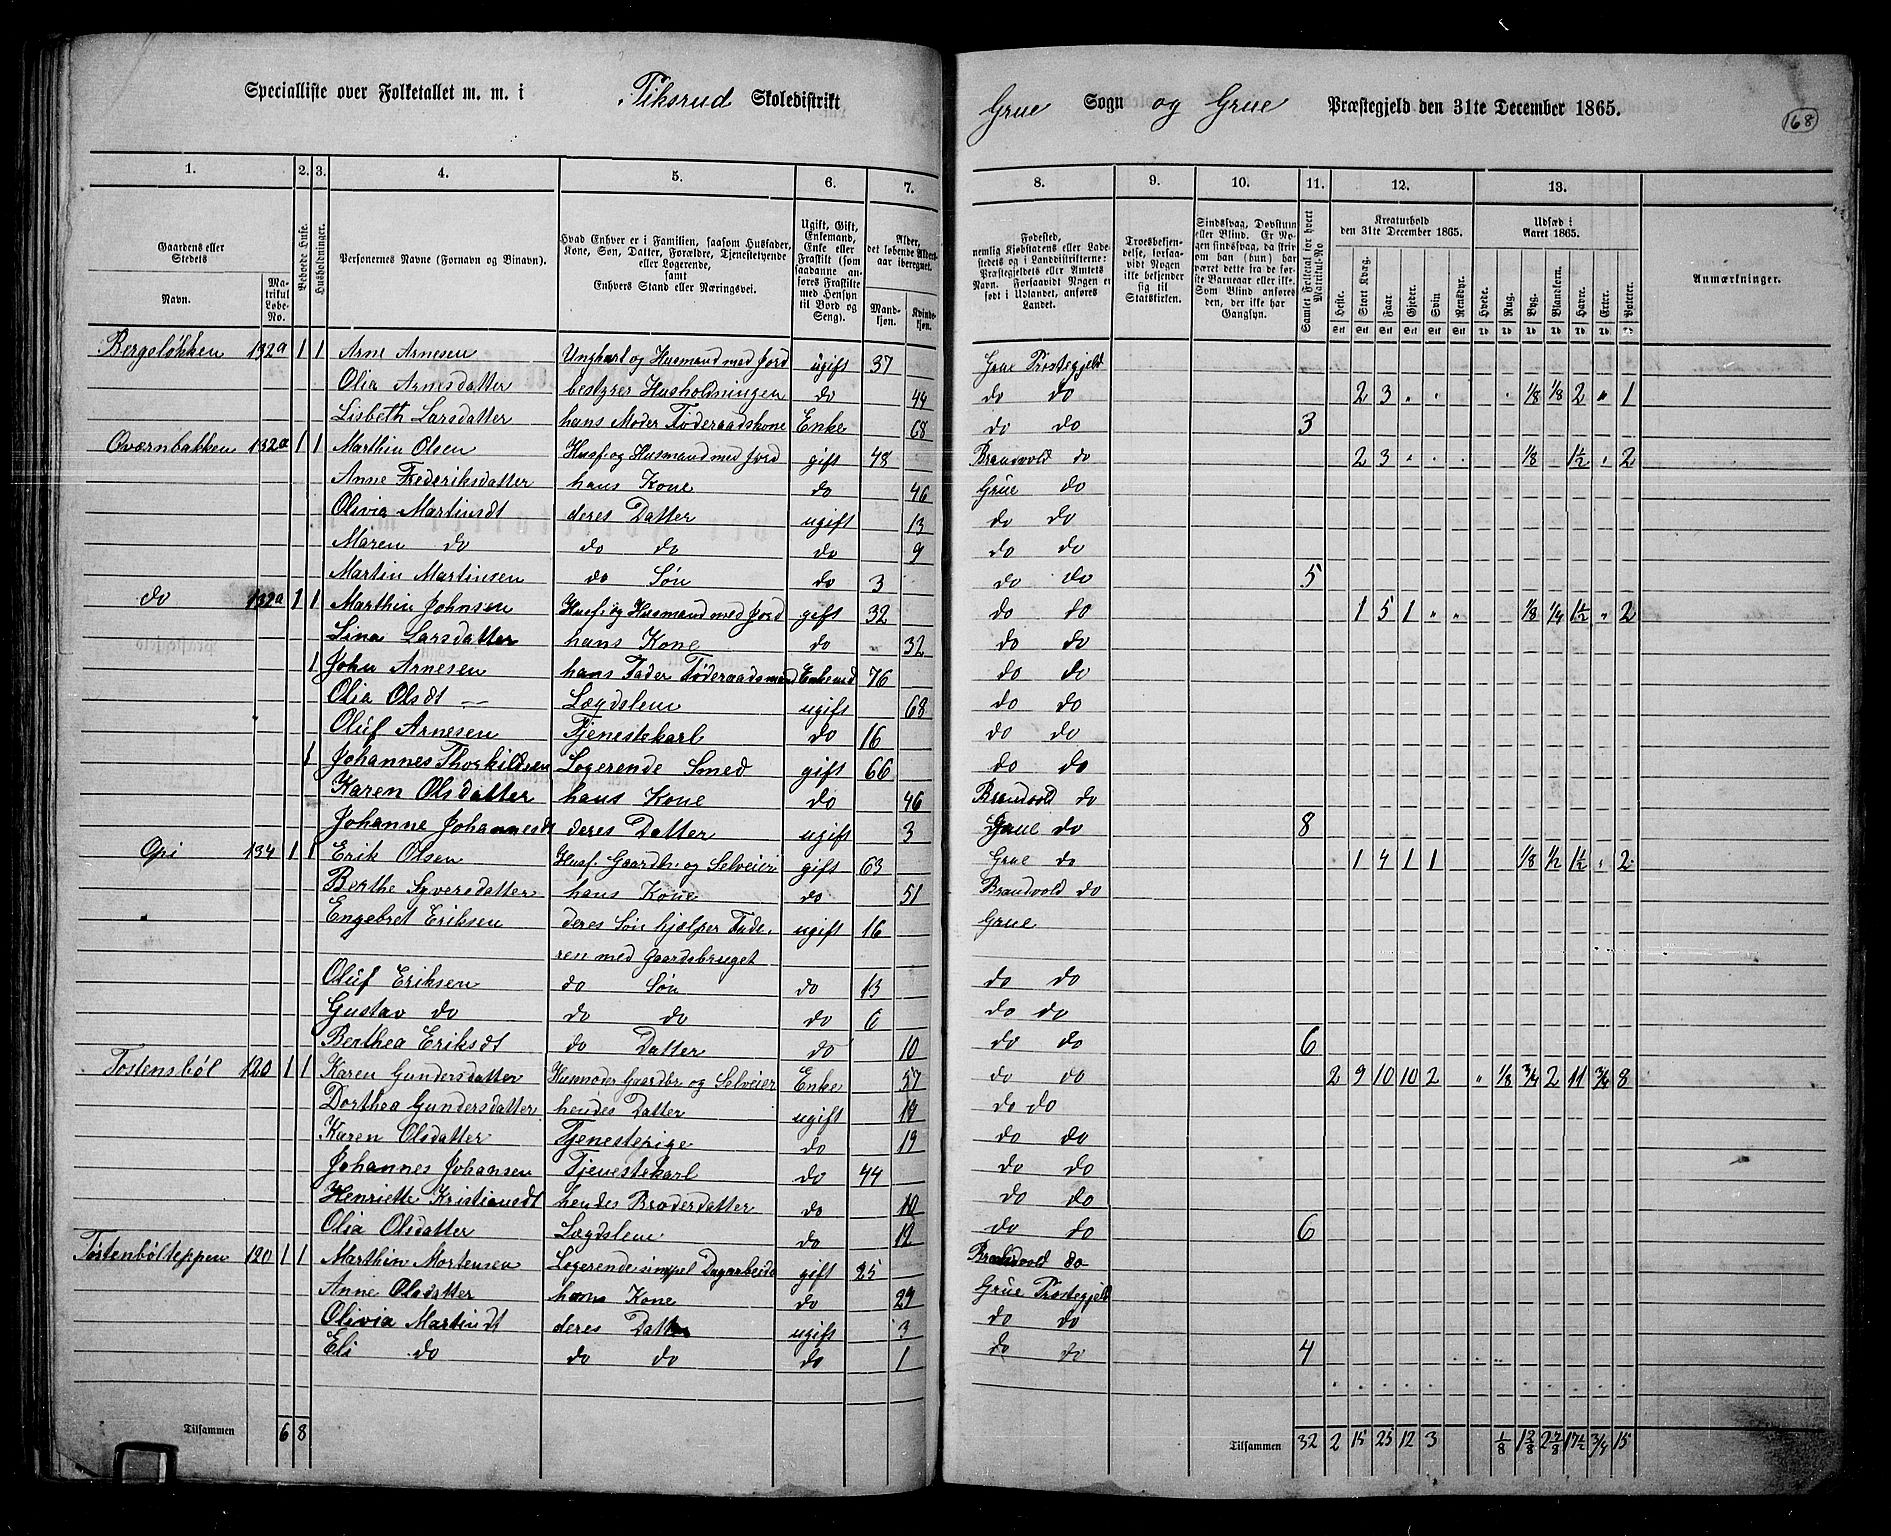 Specialliste over Folketallet m. m. i Tiksrud Skoledistrikt Grue Sogn og Grue Præstegjeld den 31te December 1865.
168
1. 2. 3. 4. 5. 6. 7. 8. 9. 10. 11. 12. 13.
Gaardens eller Stedets
Navn. Matrikul Løbe-No.
Beboede Huse.
Husholdninger.
Personernes Navne (Fornavn og Binavn).
Hvad Enhver er i Familien, saasom Husfader, Kone, Søn, Datter, Forældre, Tjenestetyende eller Logerende, samt Enhvers Stand eller Næringsvei.
Ugift, Gift, Enkemand, Enke eller Fraskilt (som saadanne anføres Fraskilte med Hensyn til Bord og Seng).
Alder, det løbende Aldersaar iberegnet.
Mandkjøn. Kvindekjøn.
Fødested, nemlig Kjøbstadens eller Ladestedets og i Landdistrikterne: Præstegjeldets eller Amtets Navn. Forsaavidt Nogen er født i Udlandet, anføres Landet.
Troesbekjendelse, forsaavidt Nogen ikke bekjender sig til Statskirken.
Sindssvag, Døvstum eller Blind. Er Nogen sindssvag, da skrives om han (hun) har været dette fra de første Barneaar eller ikke. Som Blind anføres den, der ikke har Gangsyn.
Samlet Folketal for hvert Matrikul-No
Kreaturhold den 31te December 1865.
Heste. Stort Kvæg. Faar. Gjeder. Svin Rensdyr.
Udsæd i Aaret 1865.
Hvede. Rug. Byg. Blandkorn. Havre. Erter. Poteter.
Anmærkninger.
Bergeløkken 132a 1 1 Arne Arnesen Ungkarl og Husmand med Jord ugift 37 Grue Præstegjeld
Olia Arnesdatter bestyrer Husholdningen do 44 do do 2 3 1/8 1/8 2 1
Lisbeth Larsdatter hans Moder Føderaadskone Enke 68 do do 3
Qværnbakken 132a 1 1 Marthin Olsen Husf. og Husmand med Jord gift 48 Brandvold do 2 3 1/8 1½ 2
Anne Frederiksdatter hans Kone do 46 Grue do
Olivia Martinsdt deres Datter ugift 13 do do
Maren do do do do 9 do do
Martin Martinsen do Søn do 3 do do 5
do 132a 1 1 Marthin Johnsen Husf. og Husmand med Jord gift 32 do do 1 5 1 1/8 1/4 1½ 2
Lina Larsdatter hans Kone do 32 do do
1 John Arnesen hans Fader Føderaadsmand Enkemd 76 do do
Olia Olsdt Lægdslem ugift 68 do do
Oluf Arnesen Tjenestekarl do 16 do do
1 Johannes Thorkildsen Logerende Smed gift 66 do do
Karen Olsdatter hans Kone do 46 Brandvold do
Johanne Johannesdt deres Datter ugift 3 Grue do 8
Opi 134 1 1 Erik Olsen Husf. Gaardbr. og Selveier gift 63 Grue do 1 4 1 1 1/8 1/2 1½ 2
Berthe Syversdatter hans Kone do 51 Brandvold do
Engebret Eriksen deres Søn hjælper Fade- ugift 16 Grue
ren med Gaardsbruget
Oluf Eriksen do Søn do 13 do do
Gustav do do do do 6 do do
Berthea Eriksdt do Datter do 10 do do 6
Tostensbøl 120 1 1 Karen Gundersdatter Husmoder Gaardbr. og Selveier Enke 57 do do 2 9 10 10 2 1/8 3/4 2 11 3/4 8
Dorthea Gundersdatter hendes Datter ugift 19 do do
Karen Olsdatter Tjenestepige do 19 do do
Johannes Johansen Tjenestekarl do 44 do do
Henriette Kristiansdt hendes Broderdatter do 10 do do
Olia Olsdatter Lægdslem do 12 do do 6
Tostenbølteppen 120 1 1 Marthin Mortensen Logerende simpel Dagarbeide gift 25 Brandvold do
Anne Olsdatter hans Kone do 29 Grue Præstegjeld
Olivia Martinsdt deres Datter ugift 3 do do
Eli do do do do 1 do do 4
Tilsammen 6 8 Tilsammen 32 2 15 25 12 3 1/8 1 2/8 2 7/8 17½ 3/4 15